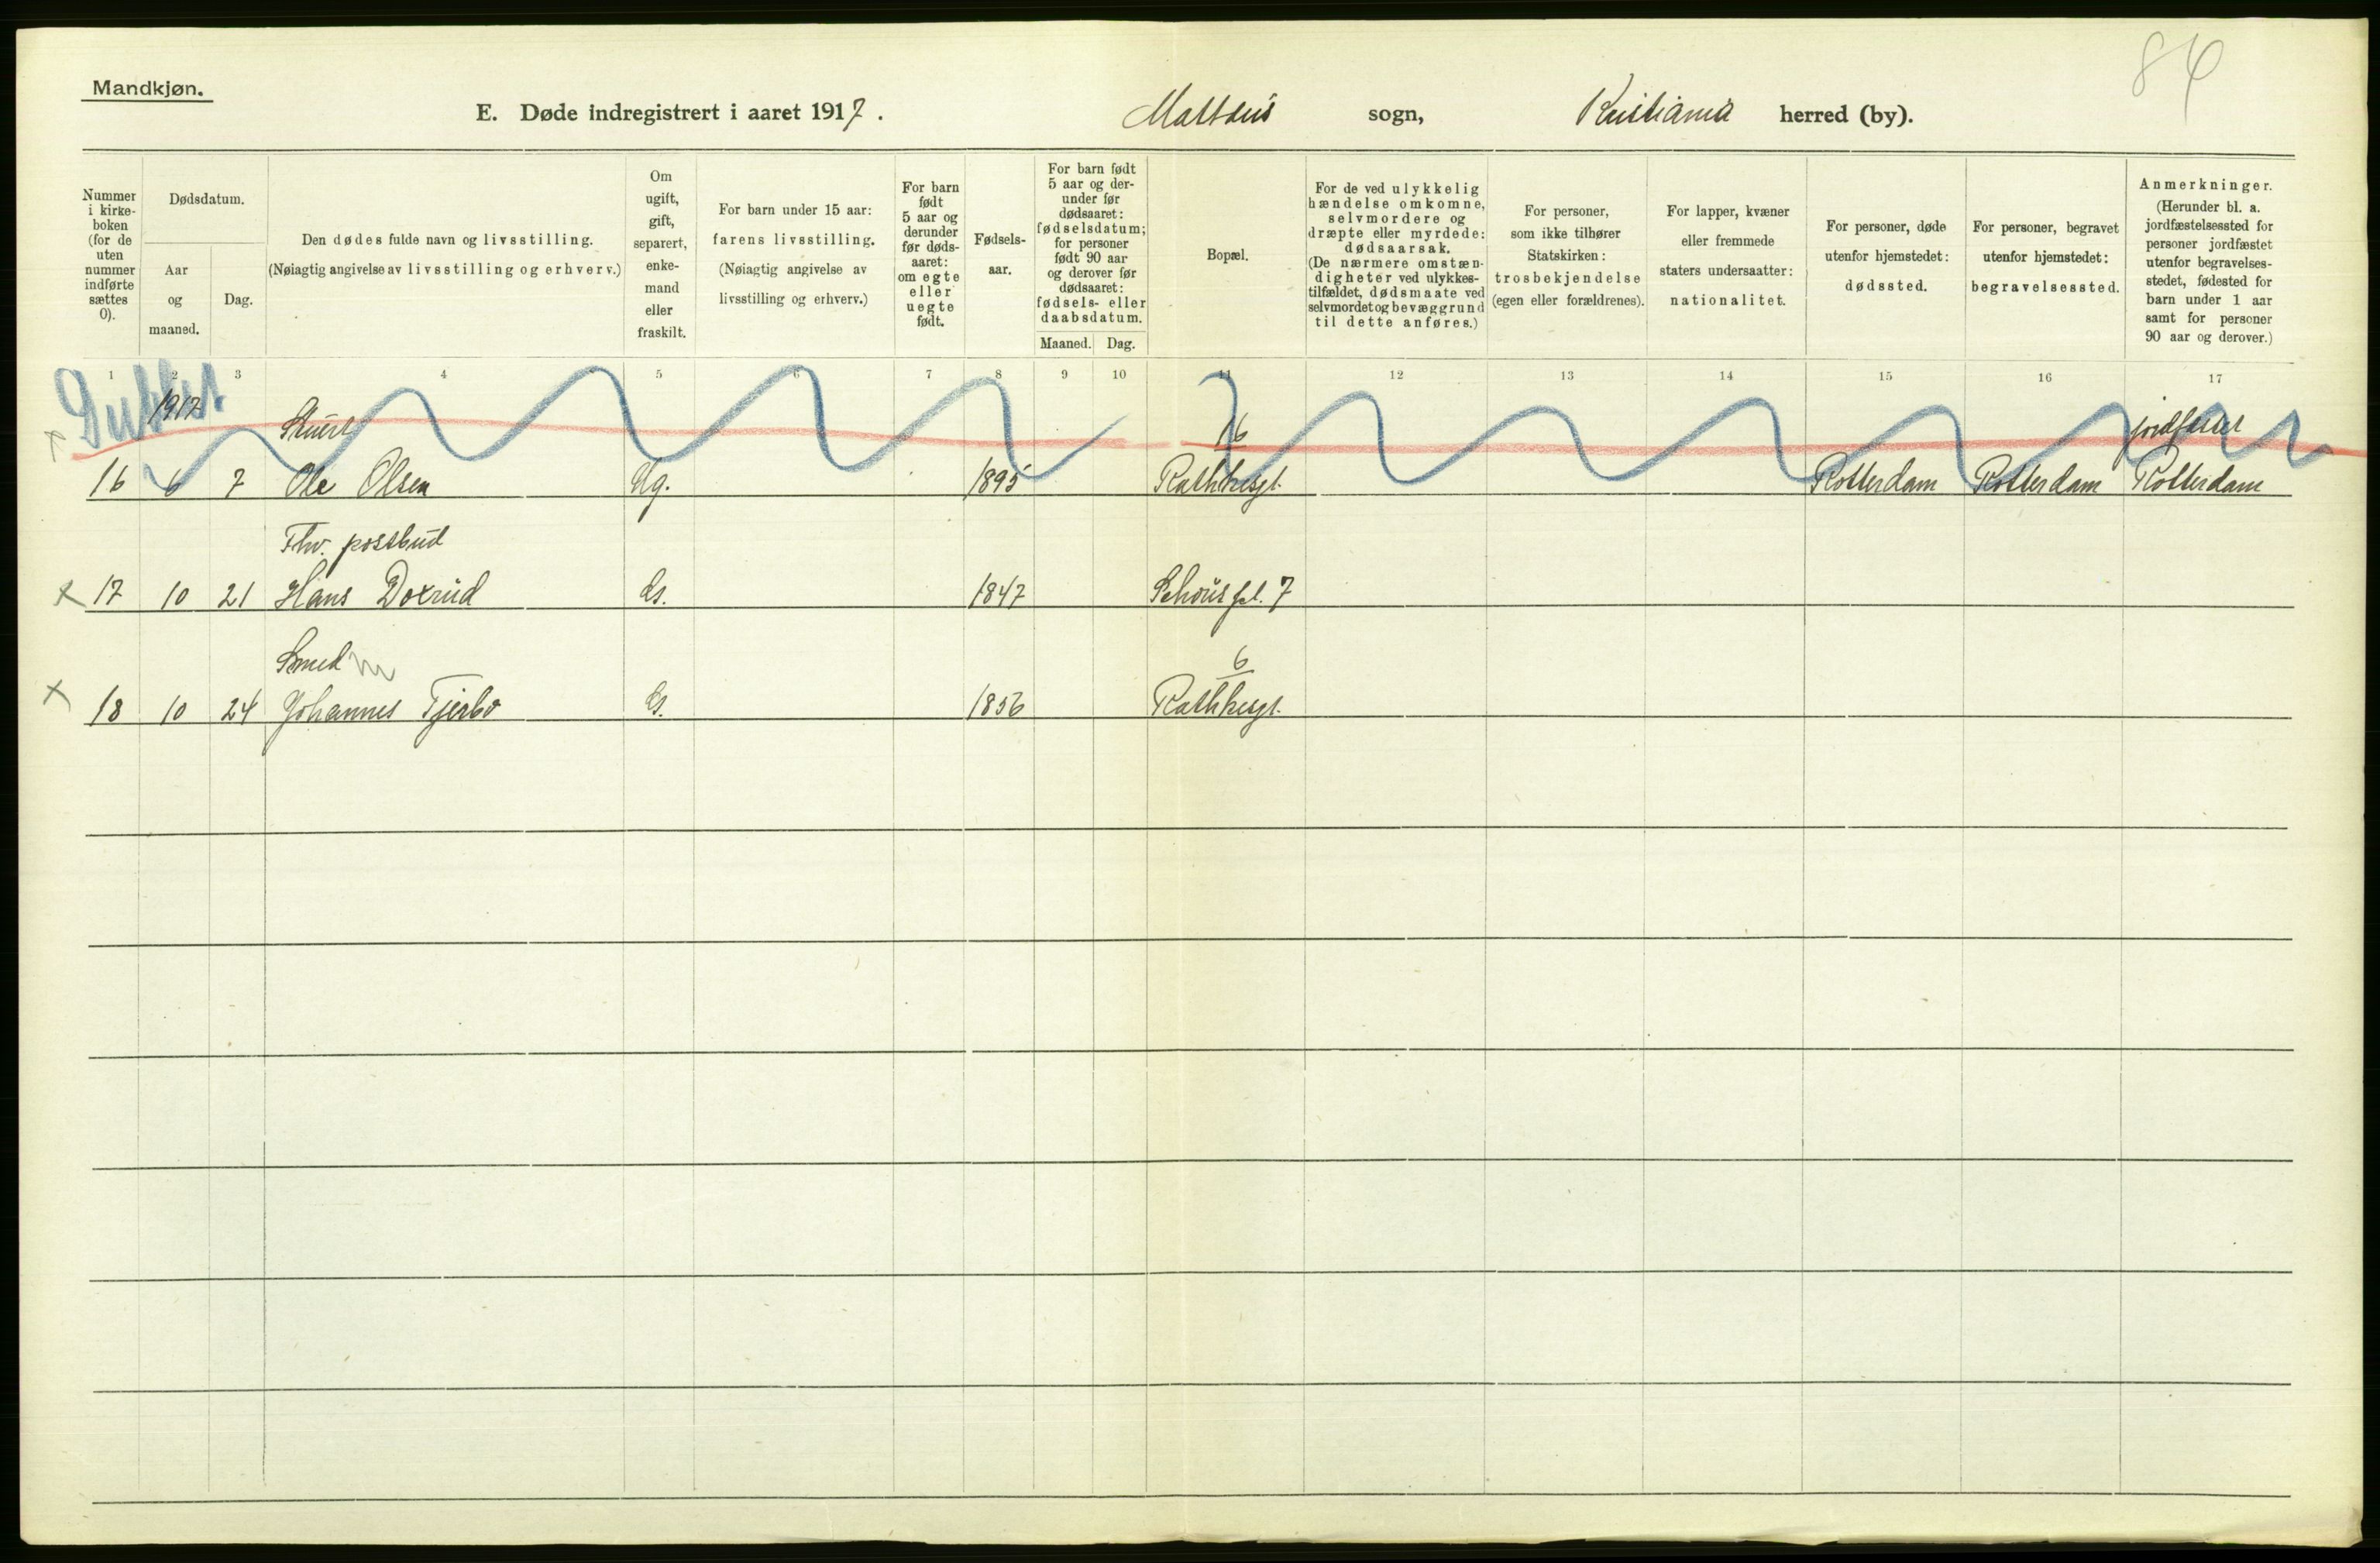 84
Mandkjøn.
E. Døde indregistrert i aaret 1917.
Mattæus sogn,
Kristiania herred (by).
Nummer i kirke-boken (for de uten nummer indførte sættes 0).
Dødsdatum.
Aar og maaned.
Dag.
Den dødes fulde navn og livsstilling.
(Nøiagtig angivelse av livsstilling og erhverv.)
Om ugift, gift, separert, enke-mand eller fraskilt.
For barn under 15 aar: farens livsstilling.
(Nøiagtig angivelse av livsstilling og erhverv.)
For barn født 5 aar og derunder før døds-aaret: om egte eller uegte født.
Fødsels-aar.
For barn født 5 aar og der-under før dødsaaret: fødselsdatum; for personer født 90 aar og derover før dødsaaret: fødsels- eller daabsdatum.
Maaned. Dag.
Bopæl.
For de ved ulykkelig hændelse omkomne, selvmordere og dræpte eller myrdede: dødsaarsak.
(De nærmere omstæn-digheter ved ulykkes-tilfældet, dødsmaate ved selvmordet og bevæggrund til dette anføres.)
For personer, som ikke tilhører Statskirken: trosbekjendelse (egen eller forældrenes).
For lapper, kvæner eller fremmede staters undersaatter: nationalitet.
For personer, døde utenfor hjemstedet: dødssted.
For personer, begravet utenfor hjemstedet: begravelsessted.
Anmerkninger.
(Herunder bl. a. jordfæstelsessted for personer jordfæstet utenfor begravelses-stedet, fødested for barn under 1 aar samt for personer 90 aar og derover.)
1 2 3 4 5 6 7 8 9 10 11 12 13 14 15 16 17
1917 Stuert 16 jordfæstet
16 6 7 Ole Olsen Ug. 1895 Rathkesgt. Rotterdam Rotterdam Rotterdam
Fhv. postbud
x 17 10 21 Hans Doxrud G. 1847 Schous pl. 7
Smed 6
x 18 10 24 Johannes Tjerbo G. 1856 Rathkesgt.